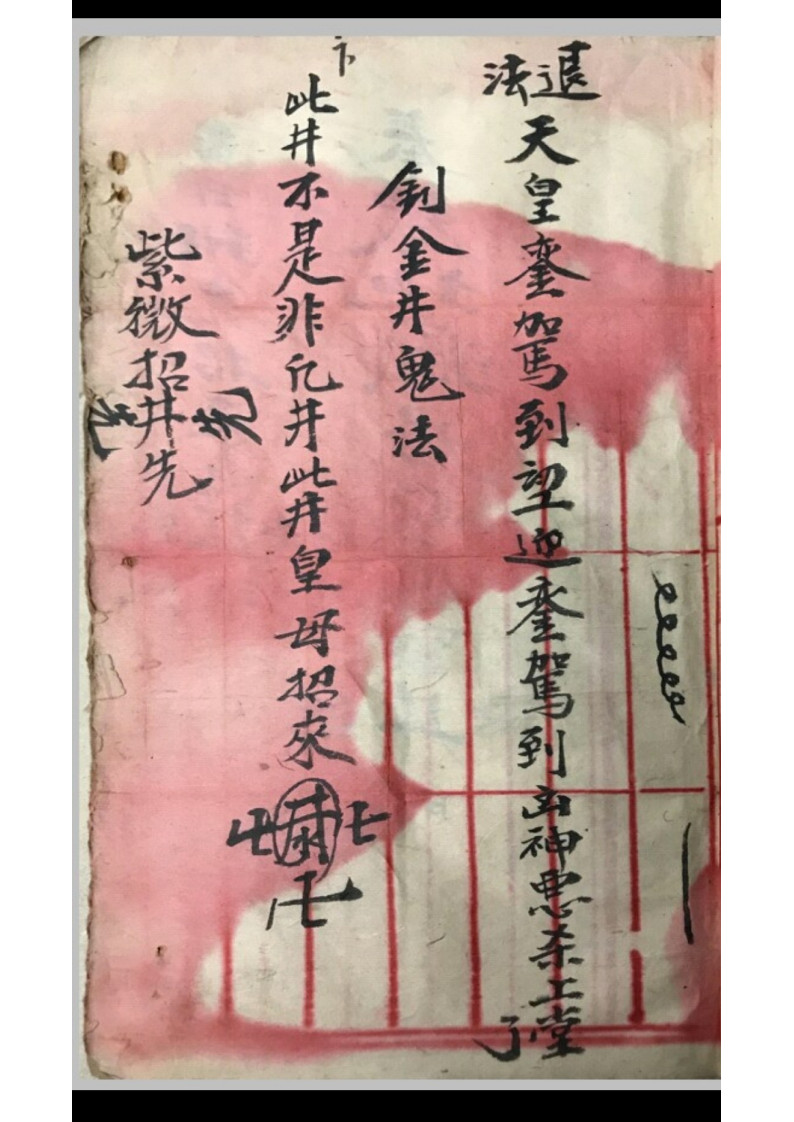 退法
天皇銮駕到望迎銮駕到凶神惡杀上堂了
釗金井鬼法
卞
此井不是非凡井此井皇母招來
紫微招井先